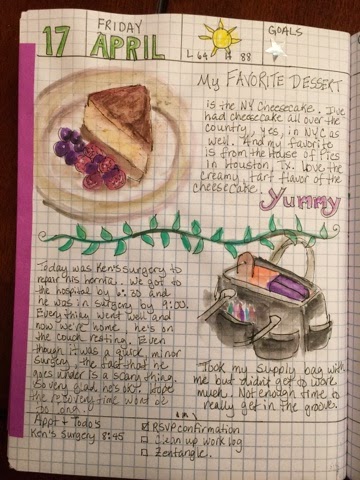 FRIDAY
17 APRIL
L 64 H 88
GOALS
My FAVORITE DESSERT
is the NY Cheesecake. I've
had cheesecake all over the
country, yes, in NYC as
well. And my favorite
is from the House of Pies
in Houston, Tx. Love the
creamy, tart flavor of the
cheesecake.
Yummy
Today was Ken's surgery to
repair his hernia. We got to
the hospital by 6:30 and
he was in surgery by 9:00.
Everything went well and
now we're home. he's on
the couch resting. Even
though it was a quick, minor
surgery, the fact that he
goes under is a scary thing.
So very glad he's OK. Hope
the recovery time won't be
too long.
Took my supply bag with
me but didn't get to work
much. Not enough time to
really get in the groove.
Appt + Todo's
Ken's Surgery 8:45
RSVP confirmation
Clean up work log
Zentangle.